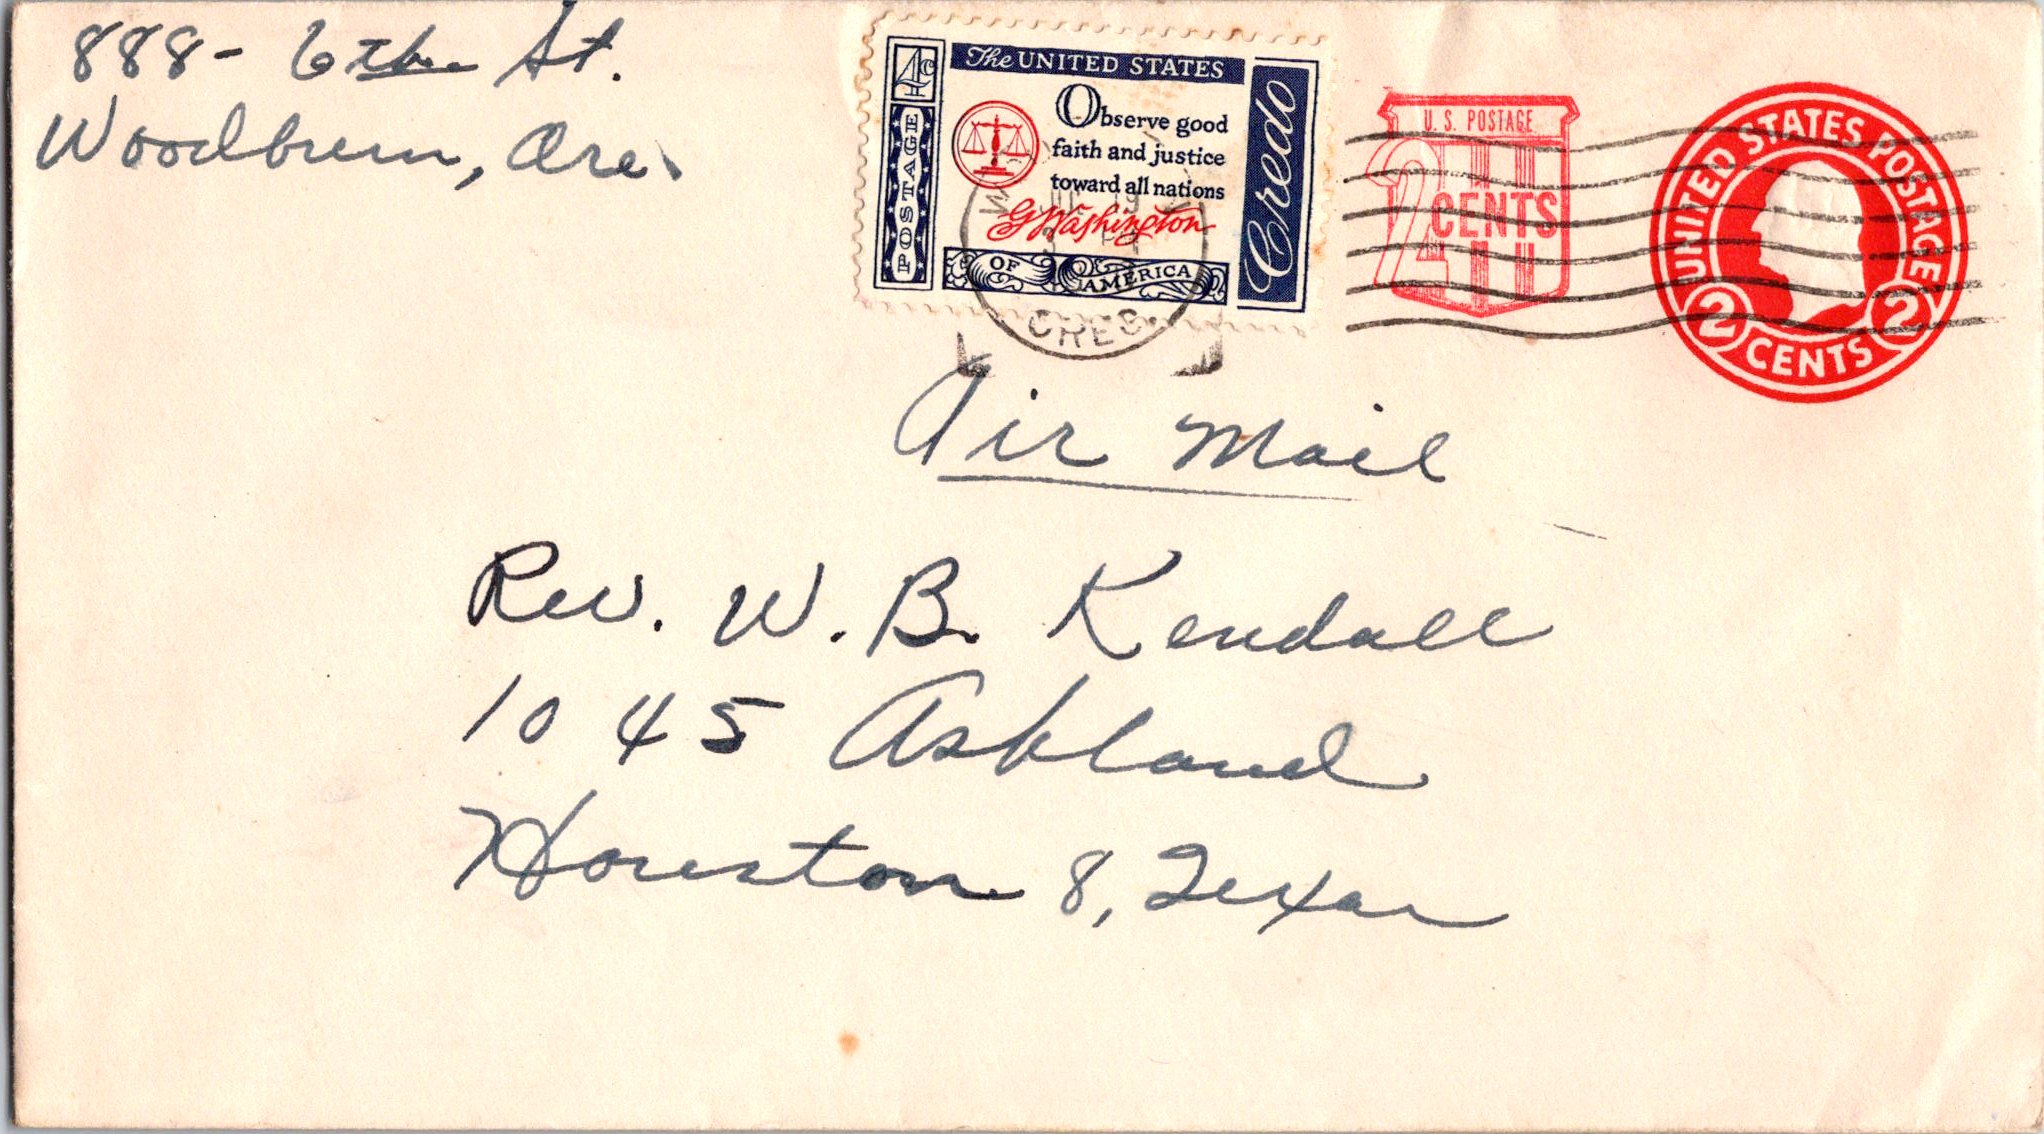 888- 6th St.
Woodburn, Ore.
4c
POSTAGE
The UNITED STATES
Observe good
faith and justice
toward all nations
G Washington
OF AMERICA
Credo
U. S. POSTAGE
2 CENTS
UNITED STATES POSTAGE
2 CENTS 2
OREG.
Air Mail
Rev. W. B. Kendall
1045 Ashland
Houston 8, Texas